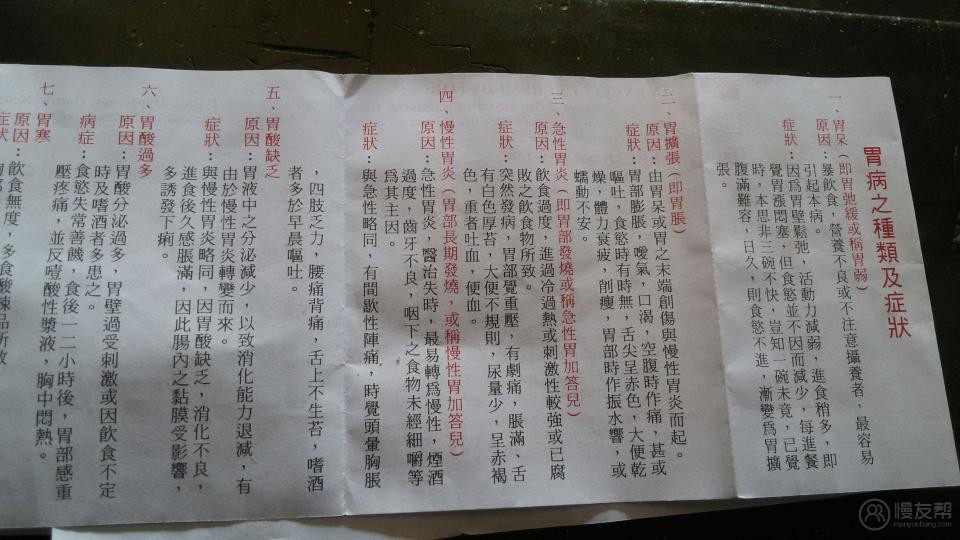 胃病之種類及症狀
一、胃呆（即胃弛緩或稱胃弱）
原因：暴飲食，營養不良或不注意攝養者，最容易
引起本病。
症狀：因爲胃壁鬆弛，活動力減弱，進食稍多，即
覺胃漲悶塞，但食慾並不因而減少，每進餐
時，本思非三碗不快，豈知一碗未竟，已覺
腹滿難容，日久，則食慾不進，漸變爲胃擴
張。
二、胃擴張（即胃脹）
原因：由胃呆或胃之末端創傷與慢性胃炎而起。
症狀：胃部膨脹，噯氣，口渴，空腹時作痛，甚或
嘔吐，食慾時有時無，舌尖呈赤色，大便乾
燥，體力衰疲，削瘦，胃部時作振水響，或
蠕動不安。
三、急性胃炎（即胃部發燒或稱急性胃加答兒）
原因：飲食過度，進過冷過熱或刺激性較強或已腐
敗之飲食物所致。
症狀：突然發病，胃部覺重壓，有劇痛，脹滿、舌
有白色厚苔，大便不規則，尿量少，呈赤褐
色，重者吐血，便血。
四、慢性胃炎（胃部長期發燒，或稱慢性胃加答兒）
原因：急性胃炎，醫治失時，最易轉爲慢性，煙酒
過度，齒牙不良，咽下之食物未經細嚼等
爲其主因。
症狀：與急性略同，有間歇性陣痛，時覺頭暈胸脹
，四肢乏力，腰痛背痛，舌上不生苔，嗜酒
者多於早晨嘔吐。
五、胃酸缺乏
原因：胃液中之分泌減少，以致消化能力退減，有
由於慢性胃炎轉變而來。
症狀：與慢性胃炎略同，因胃酸缺乏，消化不良，
進食後久感脹滿，因此腸內之黏膜受影響，
多誘發下痢。
六、胃酸過多
原因：胃酸分泌過多，胃壁過受刺激或因飲食不定
時及嗜酒者多患之。
病症：食慾失常善饑，食後一二小時後，胃部感重
壓疼痛，並反噎酸性漿液，胸中悶熱。
七、胃寒
原因：飲食無度，多食酸辣品所致
症狀
慢友帮
manyoubang.com